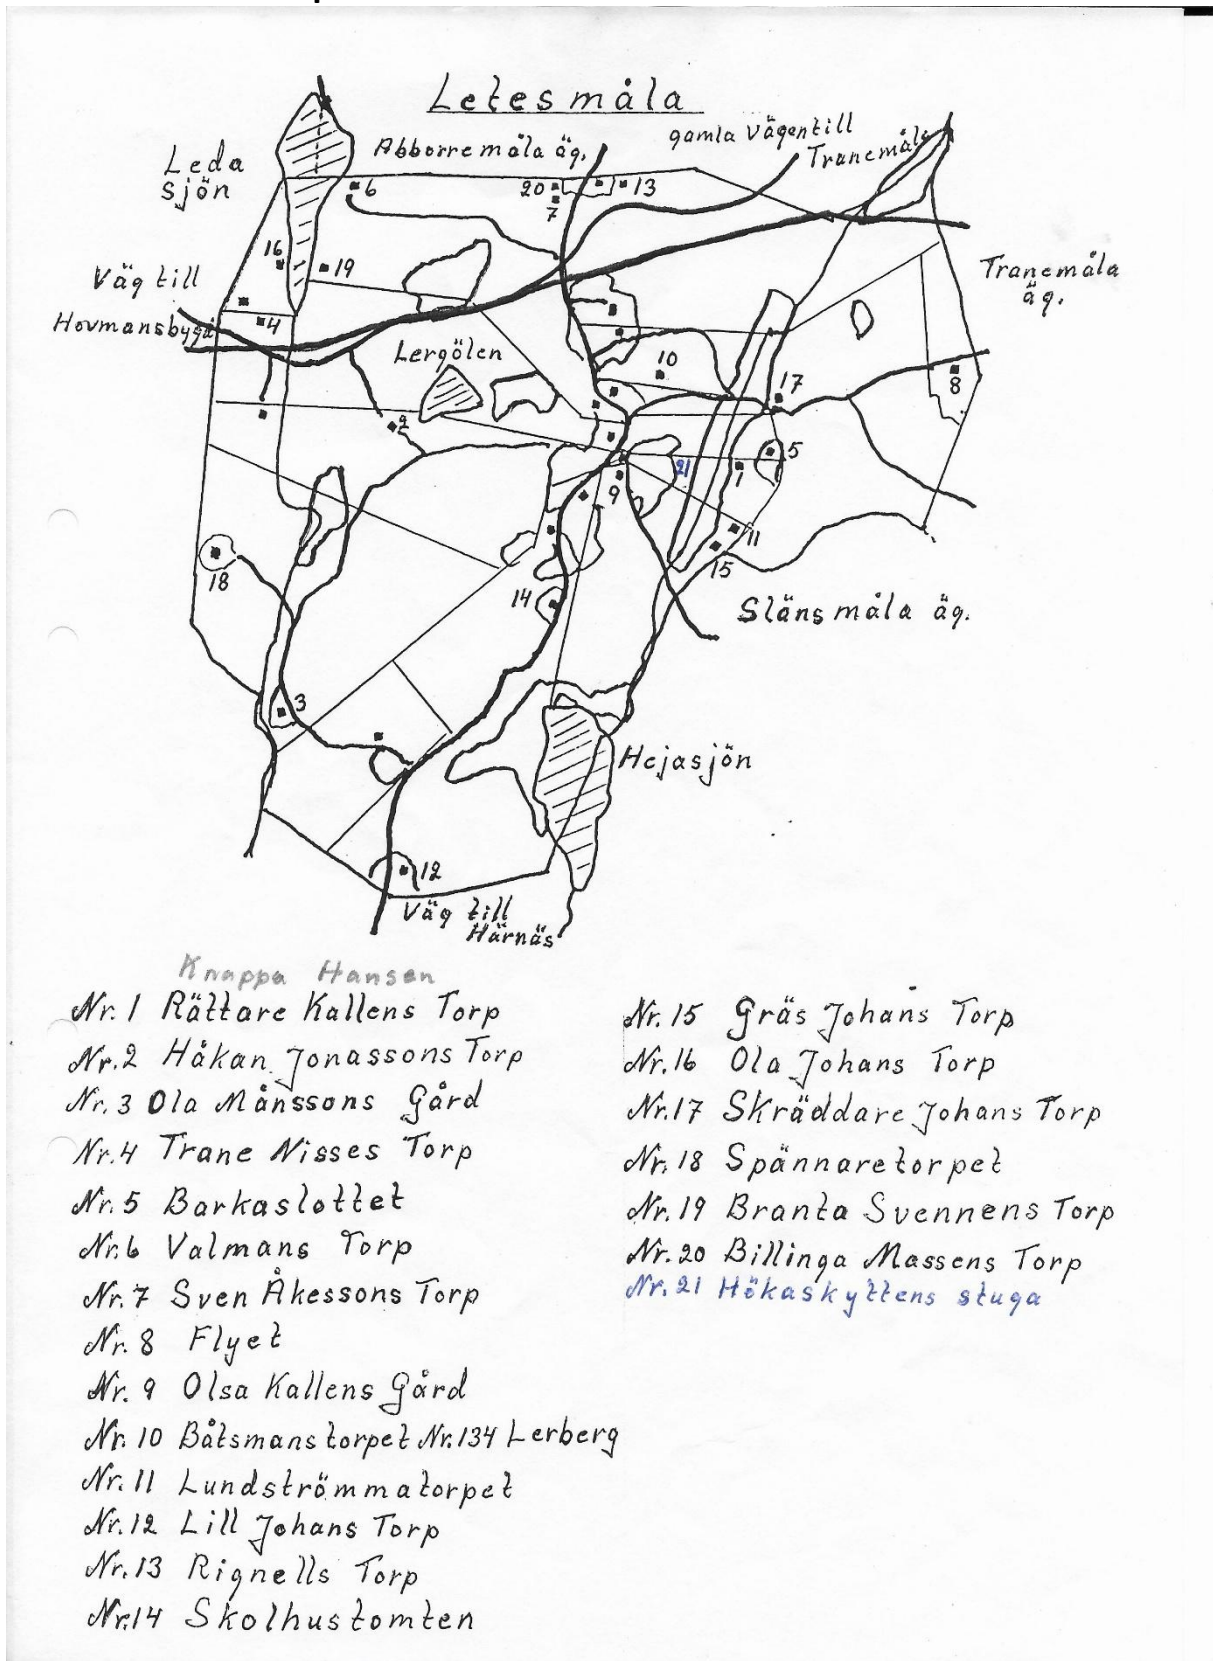 Letesmåla
gamla vägen till
Tranemåla
Abborremåla äg.
Leda
sjön
6
20
13
7
16
19
Väg till
Hovmansbygd
4
Tranemåla
äg.
Lergölen
10
17
8
2
21
1
5
9
11
15
18
14
Slänsmåla äg.
3
Hejasjön
12
Väg till
Härnäs
Knappa Hansen
Nr. 1 Rättare Kallens Torp
Nr. 2 Håkan Jonassons Torp
Nr. 3 Ola Månssons Gård
Nr. 4 Trane Nisses Torp
Nr. 5 Barkaslottet
Nr. 6 Valmans Torp
Nr. 7 Sven Åkessons Torp
Nr. 8 Flyet
Nr. 9 Olsa Kallens Gård
Nr. 10 Båtsmanstorpet Nr. 134 Lerberg
Nr. 11 Lundströmmatorpet
Nr. 12 Lill Johans Torp
Nr. 13 Rignells Torp
Nr. 14 Skolhustomten
Nr. 15 Gräs Johans Torp
Nr. 16 Ola Johans Torp
Nr. 17 Skräddare Johans Torp
Nr. 18 Spännaretorpet
Nr. 19 Branta Svennens Torp
Nr. 20 Billinga Massens Torp
Nr. 21 Hökaskyttens stuga